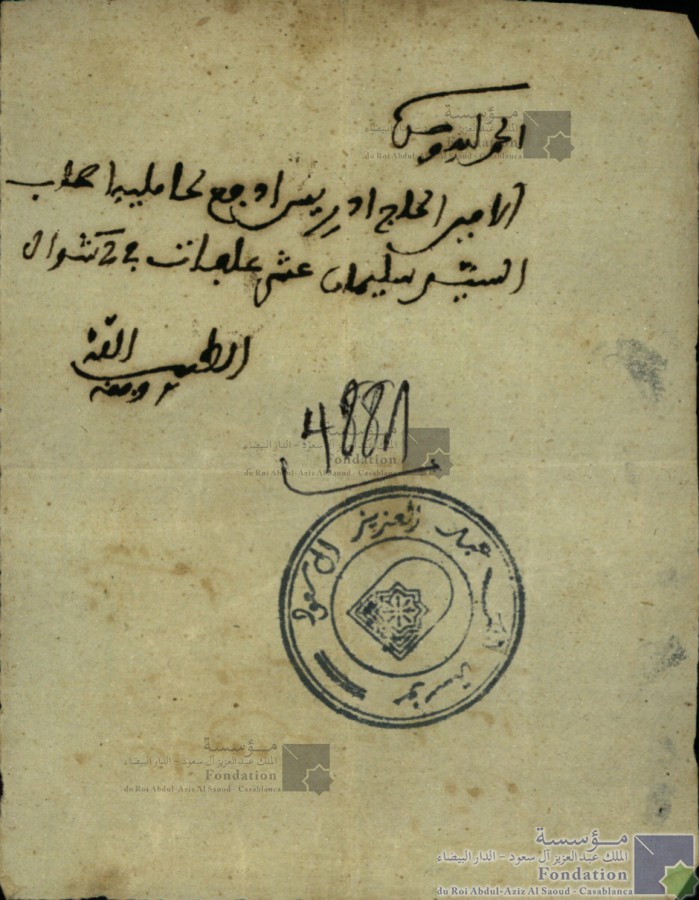 الحمد لله وحده
مؤسسة
du Roi Abdul-Aziz Al Saoud - Casablanca
الامين الحاج ادريس ادفع لحامليه اصحاب
السيد سليمان عشر علجات في 2 شوال
الطيب
4881
مؤسسة
الملك عبد العزيز آل سعود - الدار البيضاء
Fondation
du Roi Abdul-Aziz Al Saoud - Casablanca
مؤسسة الملك عبد العزيز آل سعود
مؤسسة
الملك عبد العزيز آل سعود - الدار البيضاء
Fondation
du Roi Abdul-Aziz Al Saoud - Casablanca
مؤسسة
الملك عبد العزيز آل سعود - الدار البيضاء
Fondation
du Roi Abdul-Aziz Al Saoud - Casablanca